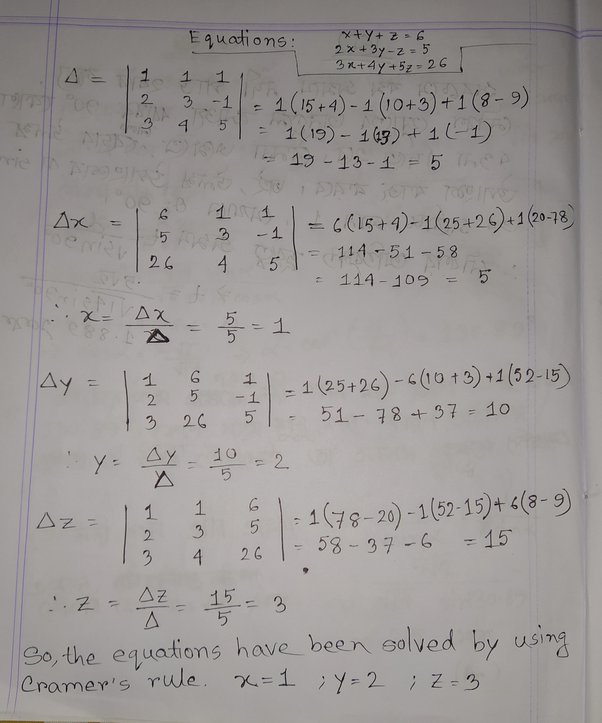 Equations: x+y+z=6
2x+3y-z=5
3x+4y+5z=26
Δ = | 1 1 1 |
| 2 3 -1 | = 1(15+4)-1(10+3)+1(8-9)
| 3 4 5 | = 1(19)-1(13)+1(-1)
= 19-13-1 = 5
Δx = | 6 1 1 | = 6(15+4)-1(25+26)+1(20-78)
| 5 3 -1 | = 114-51-58
| 26 4 5 | = 114-109 = 5
∴ x = Δx/Δ = 5/5 = 1
Δy = | 1 6 1 | = 1(25+26)-6(10+3)+1(52-15)
| 2 5 -1 |
| 3 26 5 | = 51-78+37 = 10
∴ y = Δy/Δ = 10/5 = 2
Δz = | 1 1 6 | = 1(78-20)-1(52-15)+6(8-9)
| 2 3 5 |
| 3 4 26 | = 58-37-6 = 15
∴ z = Δz/Δ = 15/5 = 3
So, the equations have been solved by using
Cramer's rule. x=1 ; y=2 ; z=3